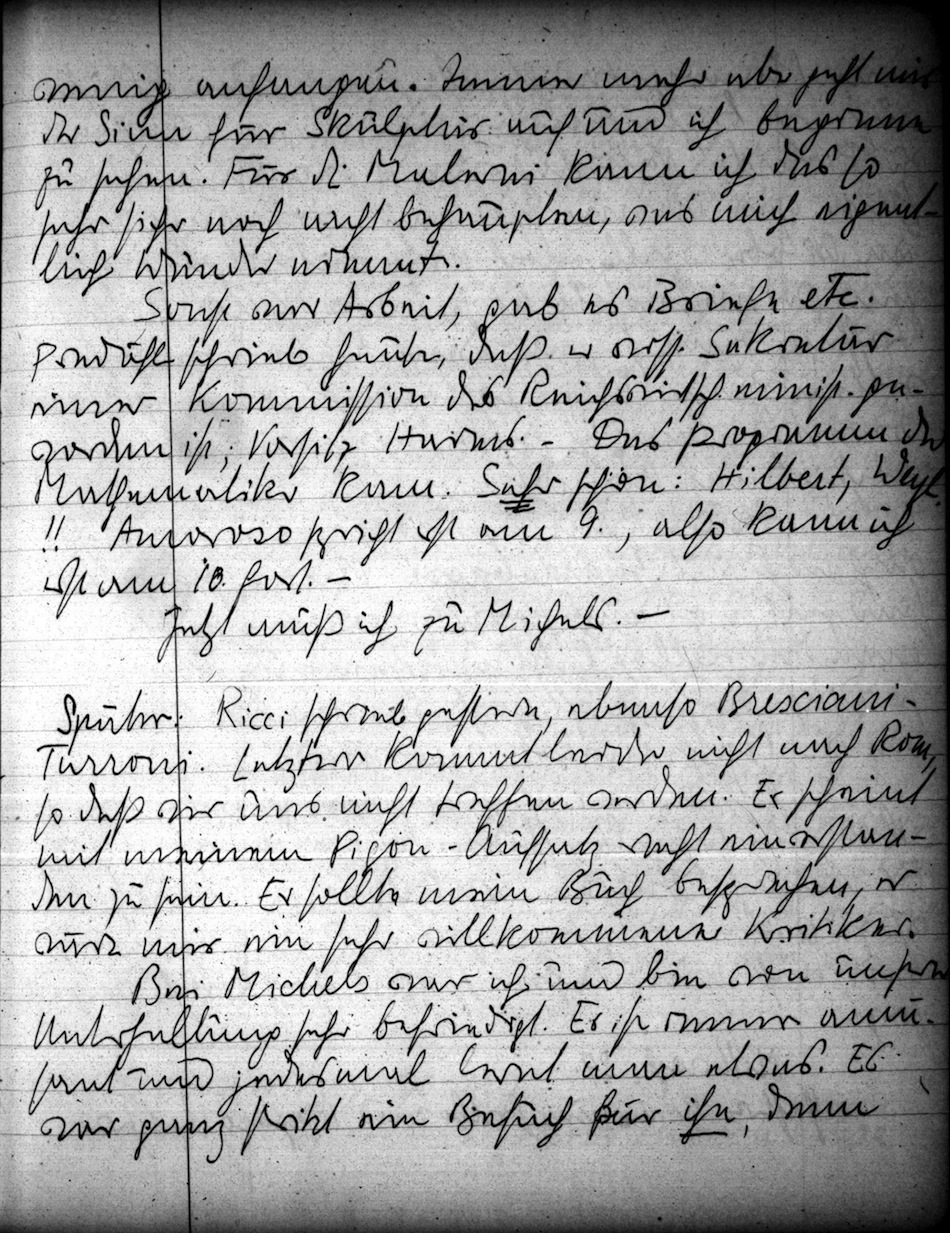 wenig anfangen. Immer mehr aber geht mir
der Sinn für Skulptur auf und ich beginne
zu sehen. Für die Malerei kann ich das so
sehr sicher noch nicht behaupten, was mich eigent-
lich Wunder nimmt.
Sonst war Arbeit, gab es Briefe etc.
Predöhl schrieb heute, daß er wiss. Sekretär
einer Kommission des Reichswirtsch. minist. ge-
worden ist; Vorsitz Harms. – Das Programm der
Mathematiker kam. Sehr schön: Hilbert, Weyl
!! Amoroso spricht erst am 9., also kann ich
erst am 10. fort. –
Jetzt muß ich zu Michels. –
Später: Ricci schrieb gestern, ebenso Bresciani-
Turroni. Letzter kommt leider nicht nach Rom,
so daß wir uns nicht treffen werden. Er scheint
mit meinem Pigou-Aufsatz recht einverstan-
den zu sein. Er sollte mein Buch besprechen, er
wäre mir ein sehr willkommener Kritiker.
Bei Michels war ich und bin von unserer
Unterhaltung sehr befriedigt. Er ist immer amü-
sant und jedesmal lernt man etwas. Es
war ganz strikt ein Besuch für ihn, denn